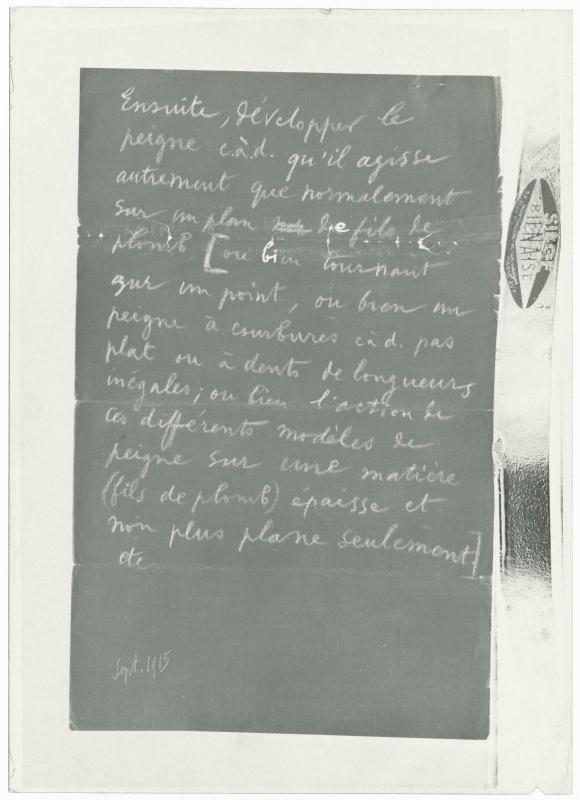 Ensuite, développer le
peigne c.à.d. qu'il agisse
autrement que normalement
sur un plan de fils de
plomb [ou bien tournant
sur un point, ou bien un
peigne à courbures c.à.d. pas
plat ou à dents de longueurs
inégales; ou bien l'action de
ces différents modèles de
peigne sur une matière
(fils de plomb) épaisse et
non plus plane seulement]
etc
Sept. 1915